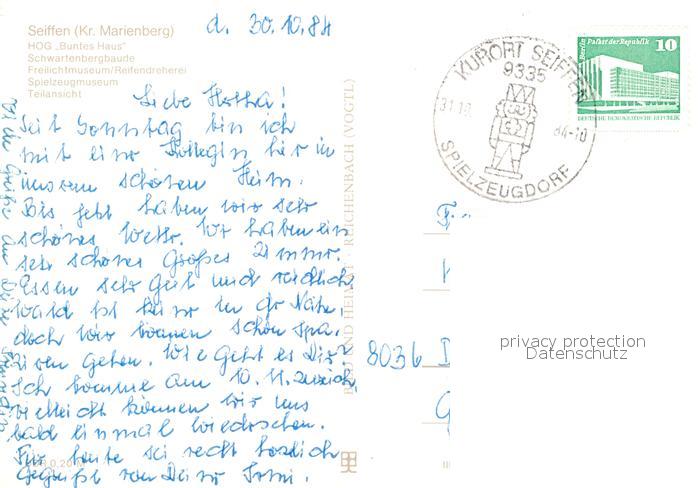 Seiffen (Kr. Marienberg)
HOG „Buntes Haus"
Schwartenbergbaude
Freilichtmuseum/Reifendreherei
Spielzeugmuseum
Teilansicht
d. 30.10.84
Liebe Hertha!
Seit Sonntag bin ich
mit einer Kollegin hier in
unserem schönen Heim.
Bis jetzt haben wir sehr
schönes Wetter. Wir haben ein
sehr schönes großes Zimmer.
Essen sehr gut und reichlich
Wald ist hier in der Nähe,
doch wir können schön spa-
zieren gehen. Wie geht es Dir?
Ich komme am 10.11. zurück,
vielleicht können wir uns
bald einmal wiedersehen.
Für heute sei recht herzlich
gegrüßt von Deiner
BILD UND HEIMAT REICHENBACH (VOGTL)
KURORT SEIFFEN
9335
31.10.
84-10
SPIELZEUGDORF
Berlin Palast der Republik 10
DEUTSCHE DEMOKRATISCHE REPUBLIK
8036 D
privacy protection
Datenschutz